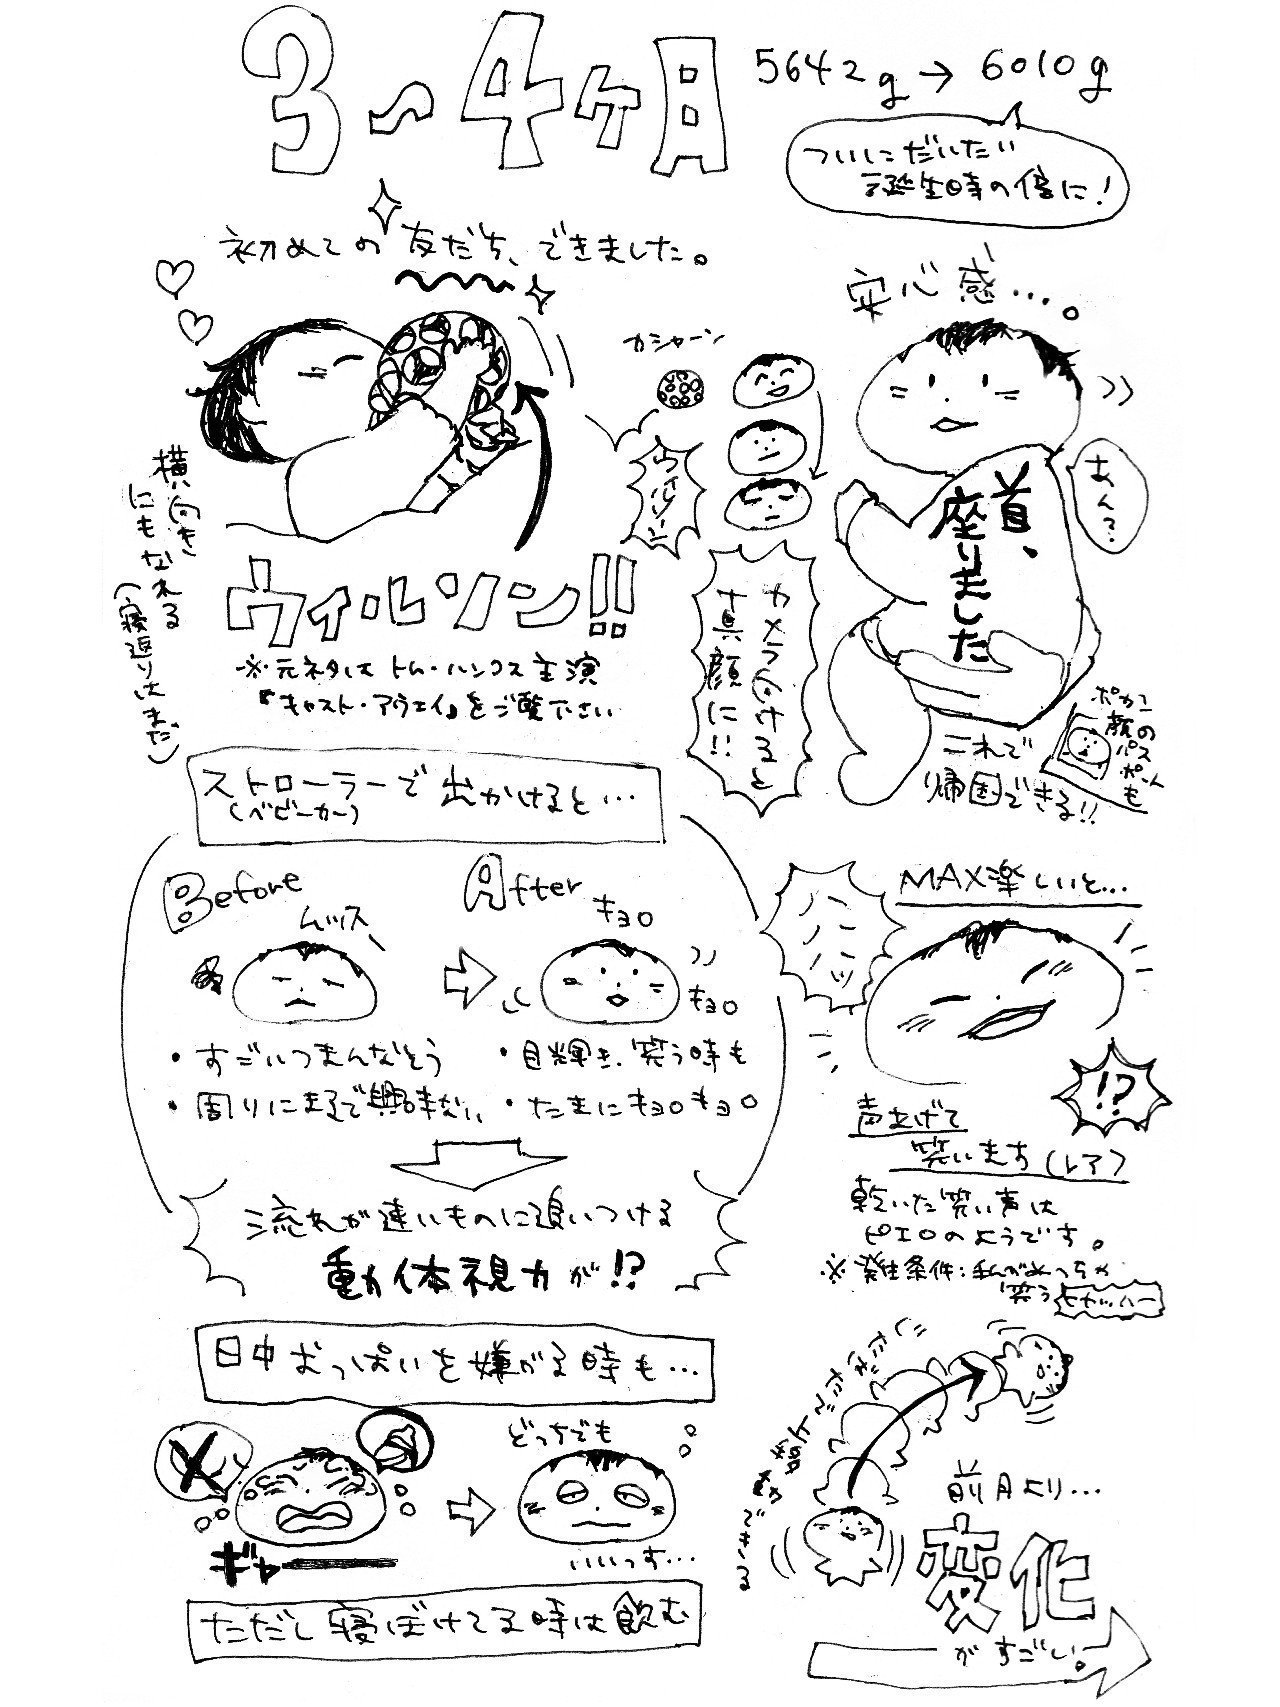 3〜4ヶ月
5642g→6010g
ついにだいたい
誕生時の倍に!
初めての友だち、できました。
安心感…。
カシャーン
横向き
にもなれる
(寝返りはまだ)
ウィルソン!!
※元ネタは トム・ハンクス主演
『キャスト・アウェイ』をご覧下さい
カメラ向けると
真顔に!!
首、
座りました
あん?
これで
帰国できる!!
ポカン
顔の
パス
ポート
も
ストローラーで出かけると…
(ベビーカー)
Before
ムッス
After
キョロ
キョロ
・すごいつまんなそう
・周りにまるで興味ない
・目輝き、笑う時も
・たまにキョロキョロ
流れが速いものに追いつける
動体視力が!?
MAX楽しいと…
ハハハハッ
!?
声あげて
笑います(レア)
乾いた笑い声は
ピエロのようです。
※発生条件:私がめっちゃ
笑う
日中おっぱいを嫌がる時も…
ギャー
どっちでも
いいっす…
ただし寝ぼけてる時は飲む
前月より…
変化
がすごい。